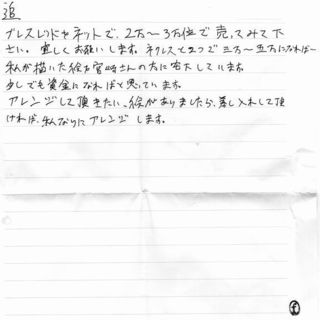 追
ブレスレットネットで、2万〜3万位で売ってみて下
さい。宜しくお願いします。ネックレスと2つで三万〜五万になれば〜
私が描いた絵も宮崎さんの方に宅下しています。
少しでも資金になればと思っています。
アレンジして頂きたい、絵がありましたら、差し入れして頂
ければ、私なりにアレンジします。